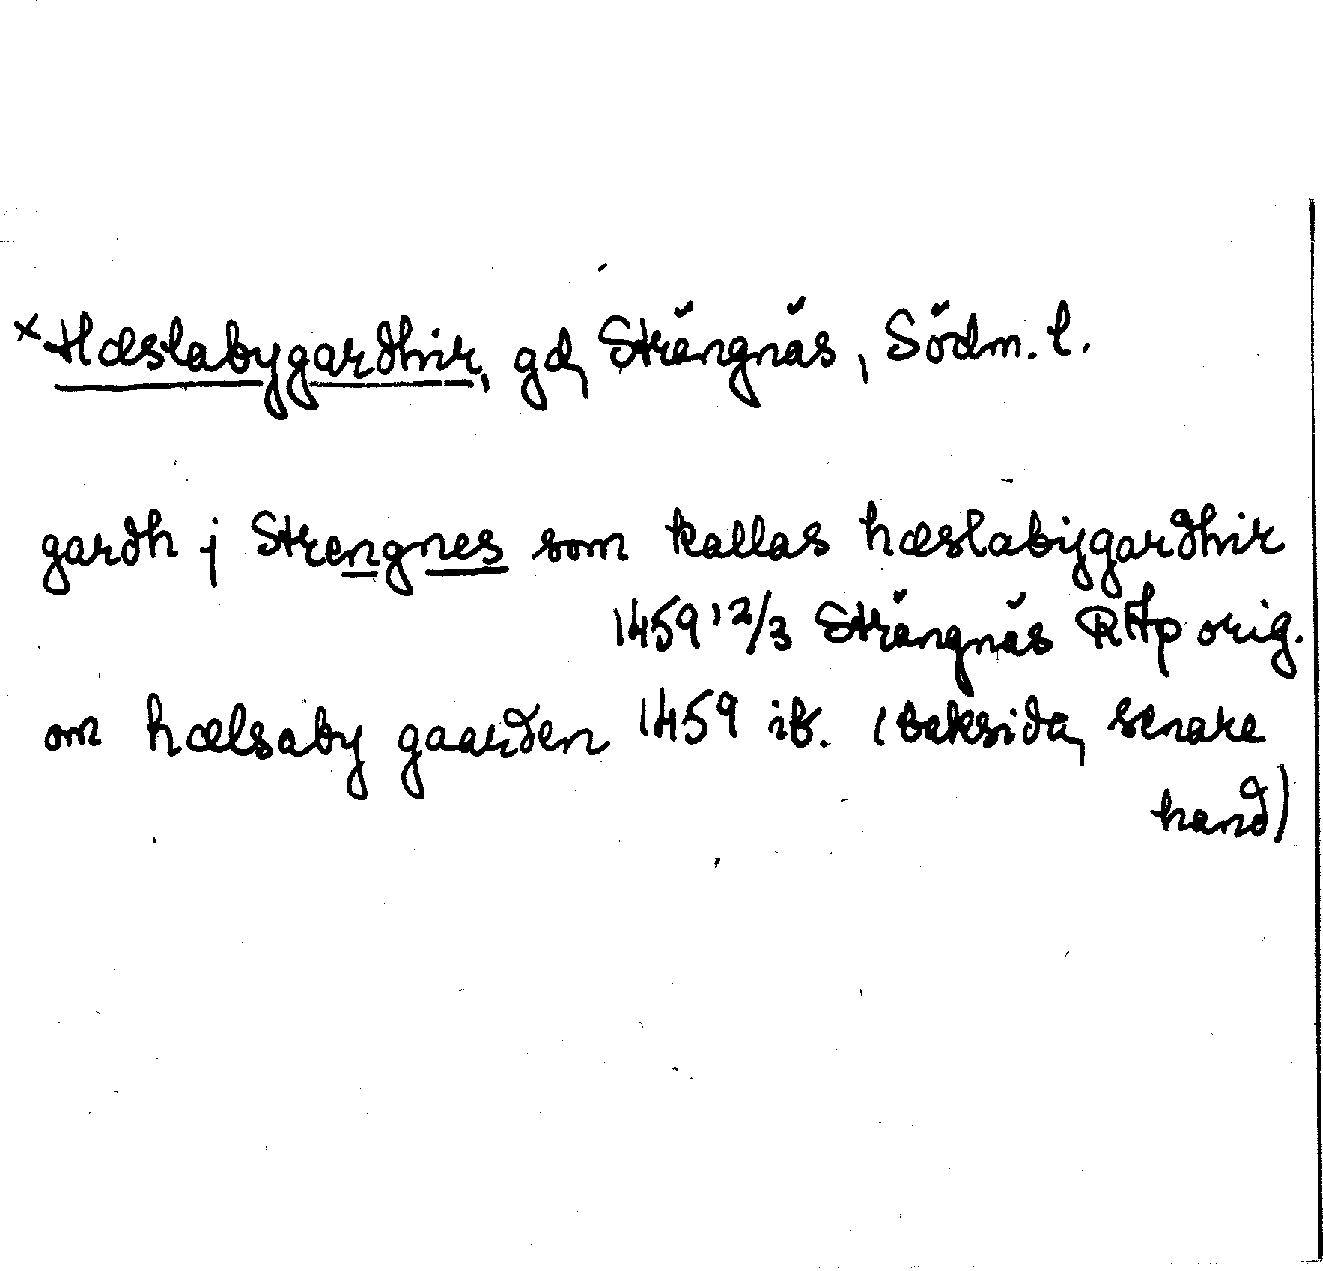 × Hæslabygardhir, gd, Strängnäs, Södm. l.
gardh j Strengnes som kallas hæslabijgardhir
1459 12/3 Strängnäs RAp orig.
om hælsaby gaarden 1459 ib. (baksida, senare
hand)